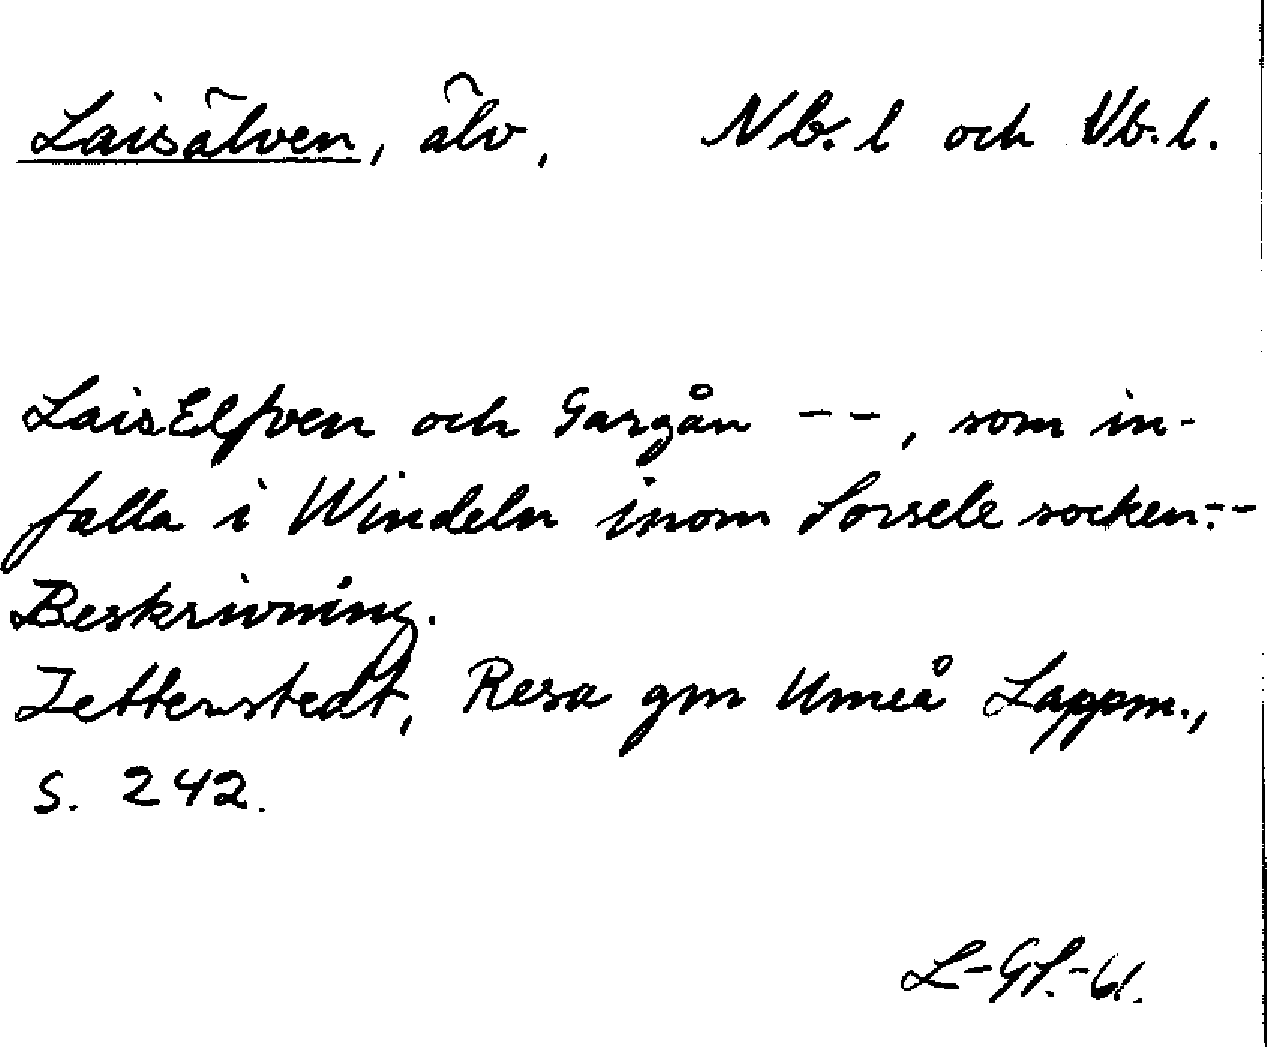 Laisälven, älv, Nb. l och Vb. l.
LaisElfven och Gargån --, som in-
falla i Windeln inom Sorsele socken.--
Beskrivning.
Zetterstedt, Resa gm Umeå Lappm.,
S. 242.
L-GS.-61.